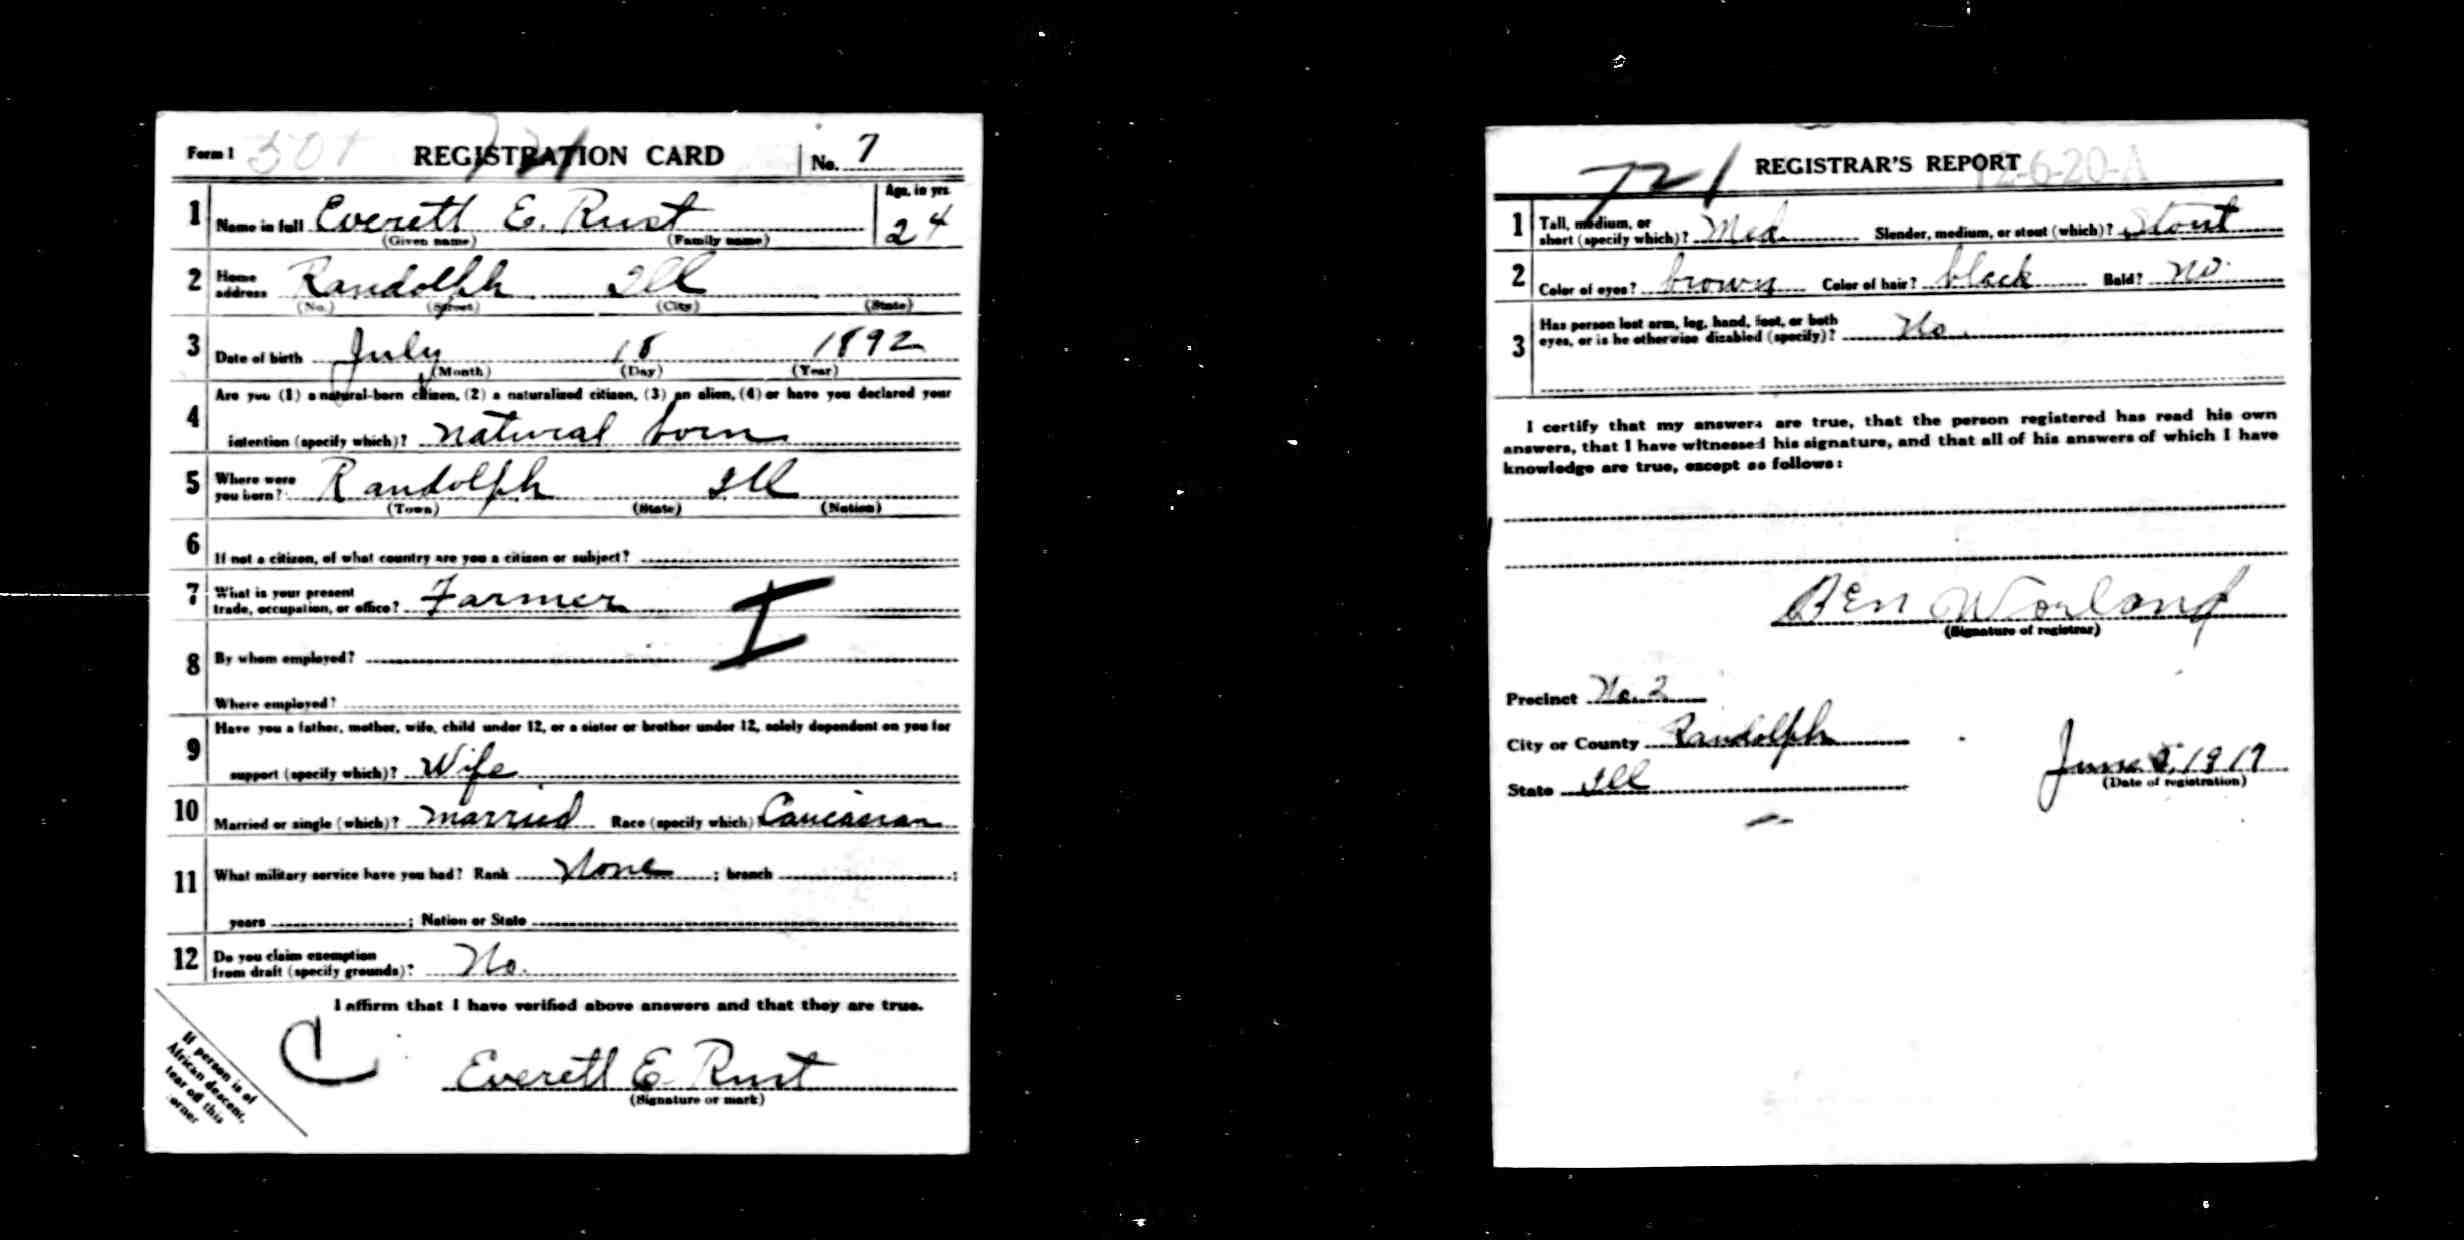 Form 1 REGISTRATION CARD No. 7
721
1 Name in full Everett E. Rust Age, in yrs. 24
(Given name) (Family name)
2 Home address Randolph Ill
(No.) (Street) (City) (State)
3 Date of birth July 18 1892
(Month) (Day) (Year)
4 Are you (1) a natural-born citizen, (2) a naturalized citizen, (3) an alien, (4) or have you declared your
intention (specify which)? natural born
5 Where were you born? Randolph Ill
(Town) (State) (Nation)
6 If not a citizen, of what country are you a citizen or subject?
7 What is your present trade, occupation, or office? Farmer
I
8 By whom employed?
Where employed?
9 Have you a father, mother, wife, child under 12, or a sister or brother under 12, solely dependent on you for
support (specify which)? Wife
10 Married or single (which)? married Race (specify which) Caucasian
11 What military service have you had? Rank None ; branch ;
years ; Nation or State
12 Do you claim exemption from draft (specify grounds)? No.
I affirm that I have verified above answers and that they are true.
C
Everett E Rust
(Signature or mark)
If person is of
African descent,
tear off this
corner
REGISTRAR'S REPORT
721
12-6-20-A
1 Tall, medium, or short (specify which)? Med Slender, medium, or stout (which)? Stout
2 Color of eyes? brown Color of hair? black Bald? No.
3 Has person lost arm, leg, hand, foot, or both
eyes, or is he otherwise disabled (specify)? No.
I certify that my answers are true, that the person registered has read his own
answers, that I have witnessed his signature, and that all of his answers of which I have
knowledge are true, except as follows:
Ben Worland
(Signature of registrar)
Precinct No. 2
City or County Randolph
State Ill
June 5, 1917
(Date of registration)